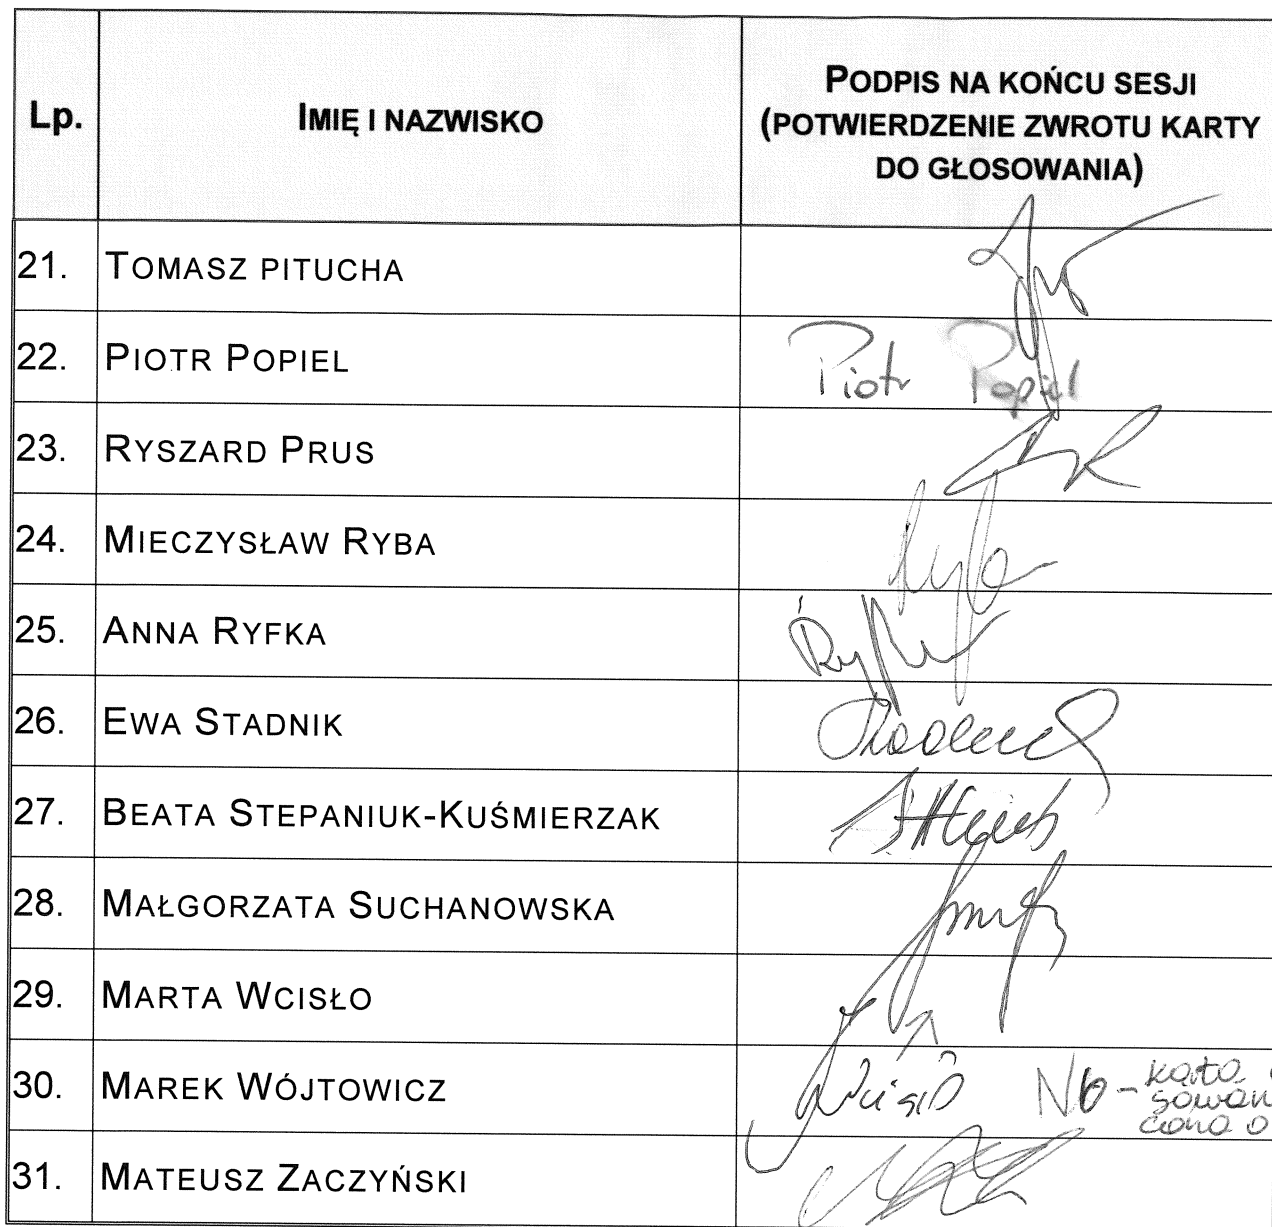 Lp.
IMIĘ I NAZWISKO
PODPIS NA KOŃCU SESJI
(POTWIERDZENIE ZWROTU KARTY
DO GŁOSOWANIA)
21. TOMASZ PITUCHA
22. PIOTR POPIEL Piotr Popiel
23. RYSZARD PRUS
24. MIECZYSŁAW RYBA Ryba
25. ANNA RYFKA
26. EWA STADNIK
27. BEATA STEPANIUK-KUŚMIERZAK
28. MAŁGORZATA SUCHANOWSKA
29. MARTA WCISŁO
30. MAREK WÓJTOWICZ Nb - karta
31. MATEUSZ ZACZYŃSKI